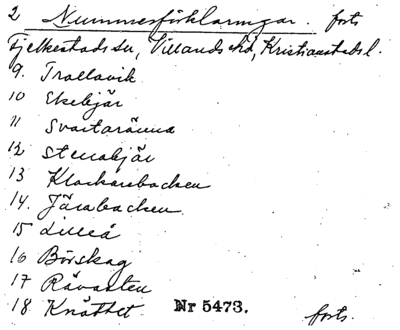 2 Nummerförklaringar. forts
Fjelkestads sn, Villands hd, Kristianstads l.
9. Trollavik
10 Ekebjär
11 Svartaränna
12 Stenabjär
13 Klockarebacken
14. Järabacken
15 Lilleå
16 Börskog
17 Rävasten
18. Knäthet. Nr 5473. forts.